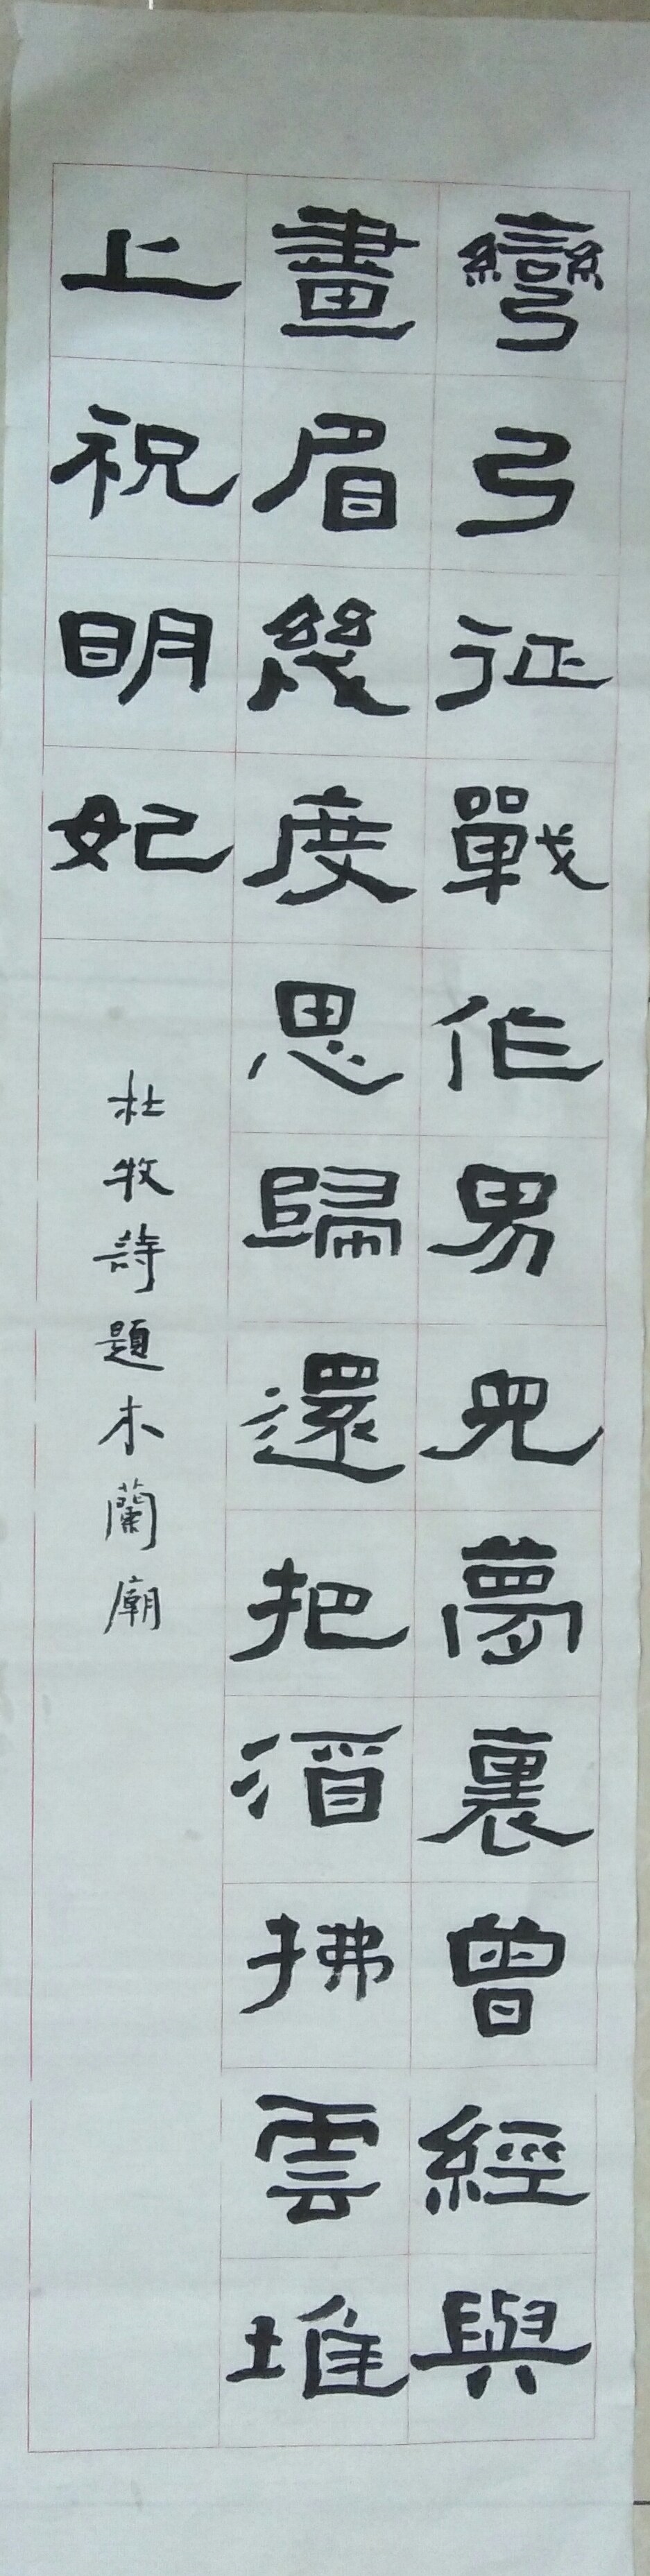 彎弓征戰作男兒夢裏曾經與
畫眉幾度思歸還把酒拂雲堆
上祝明妃
杜牧詩題木蘭廟